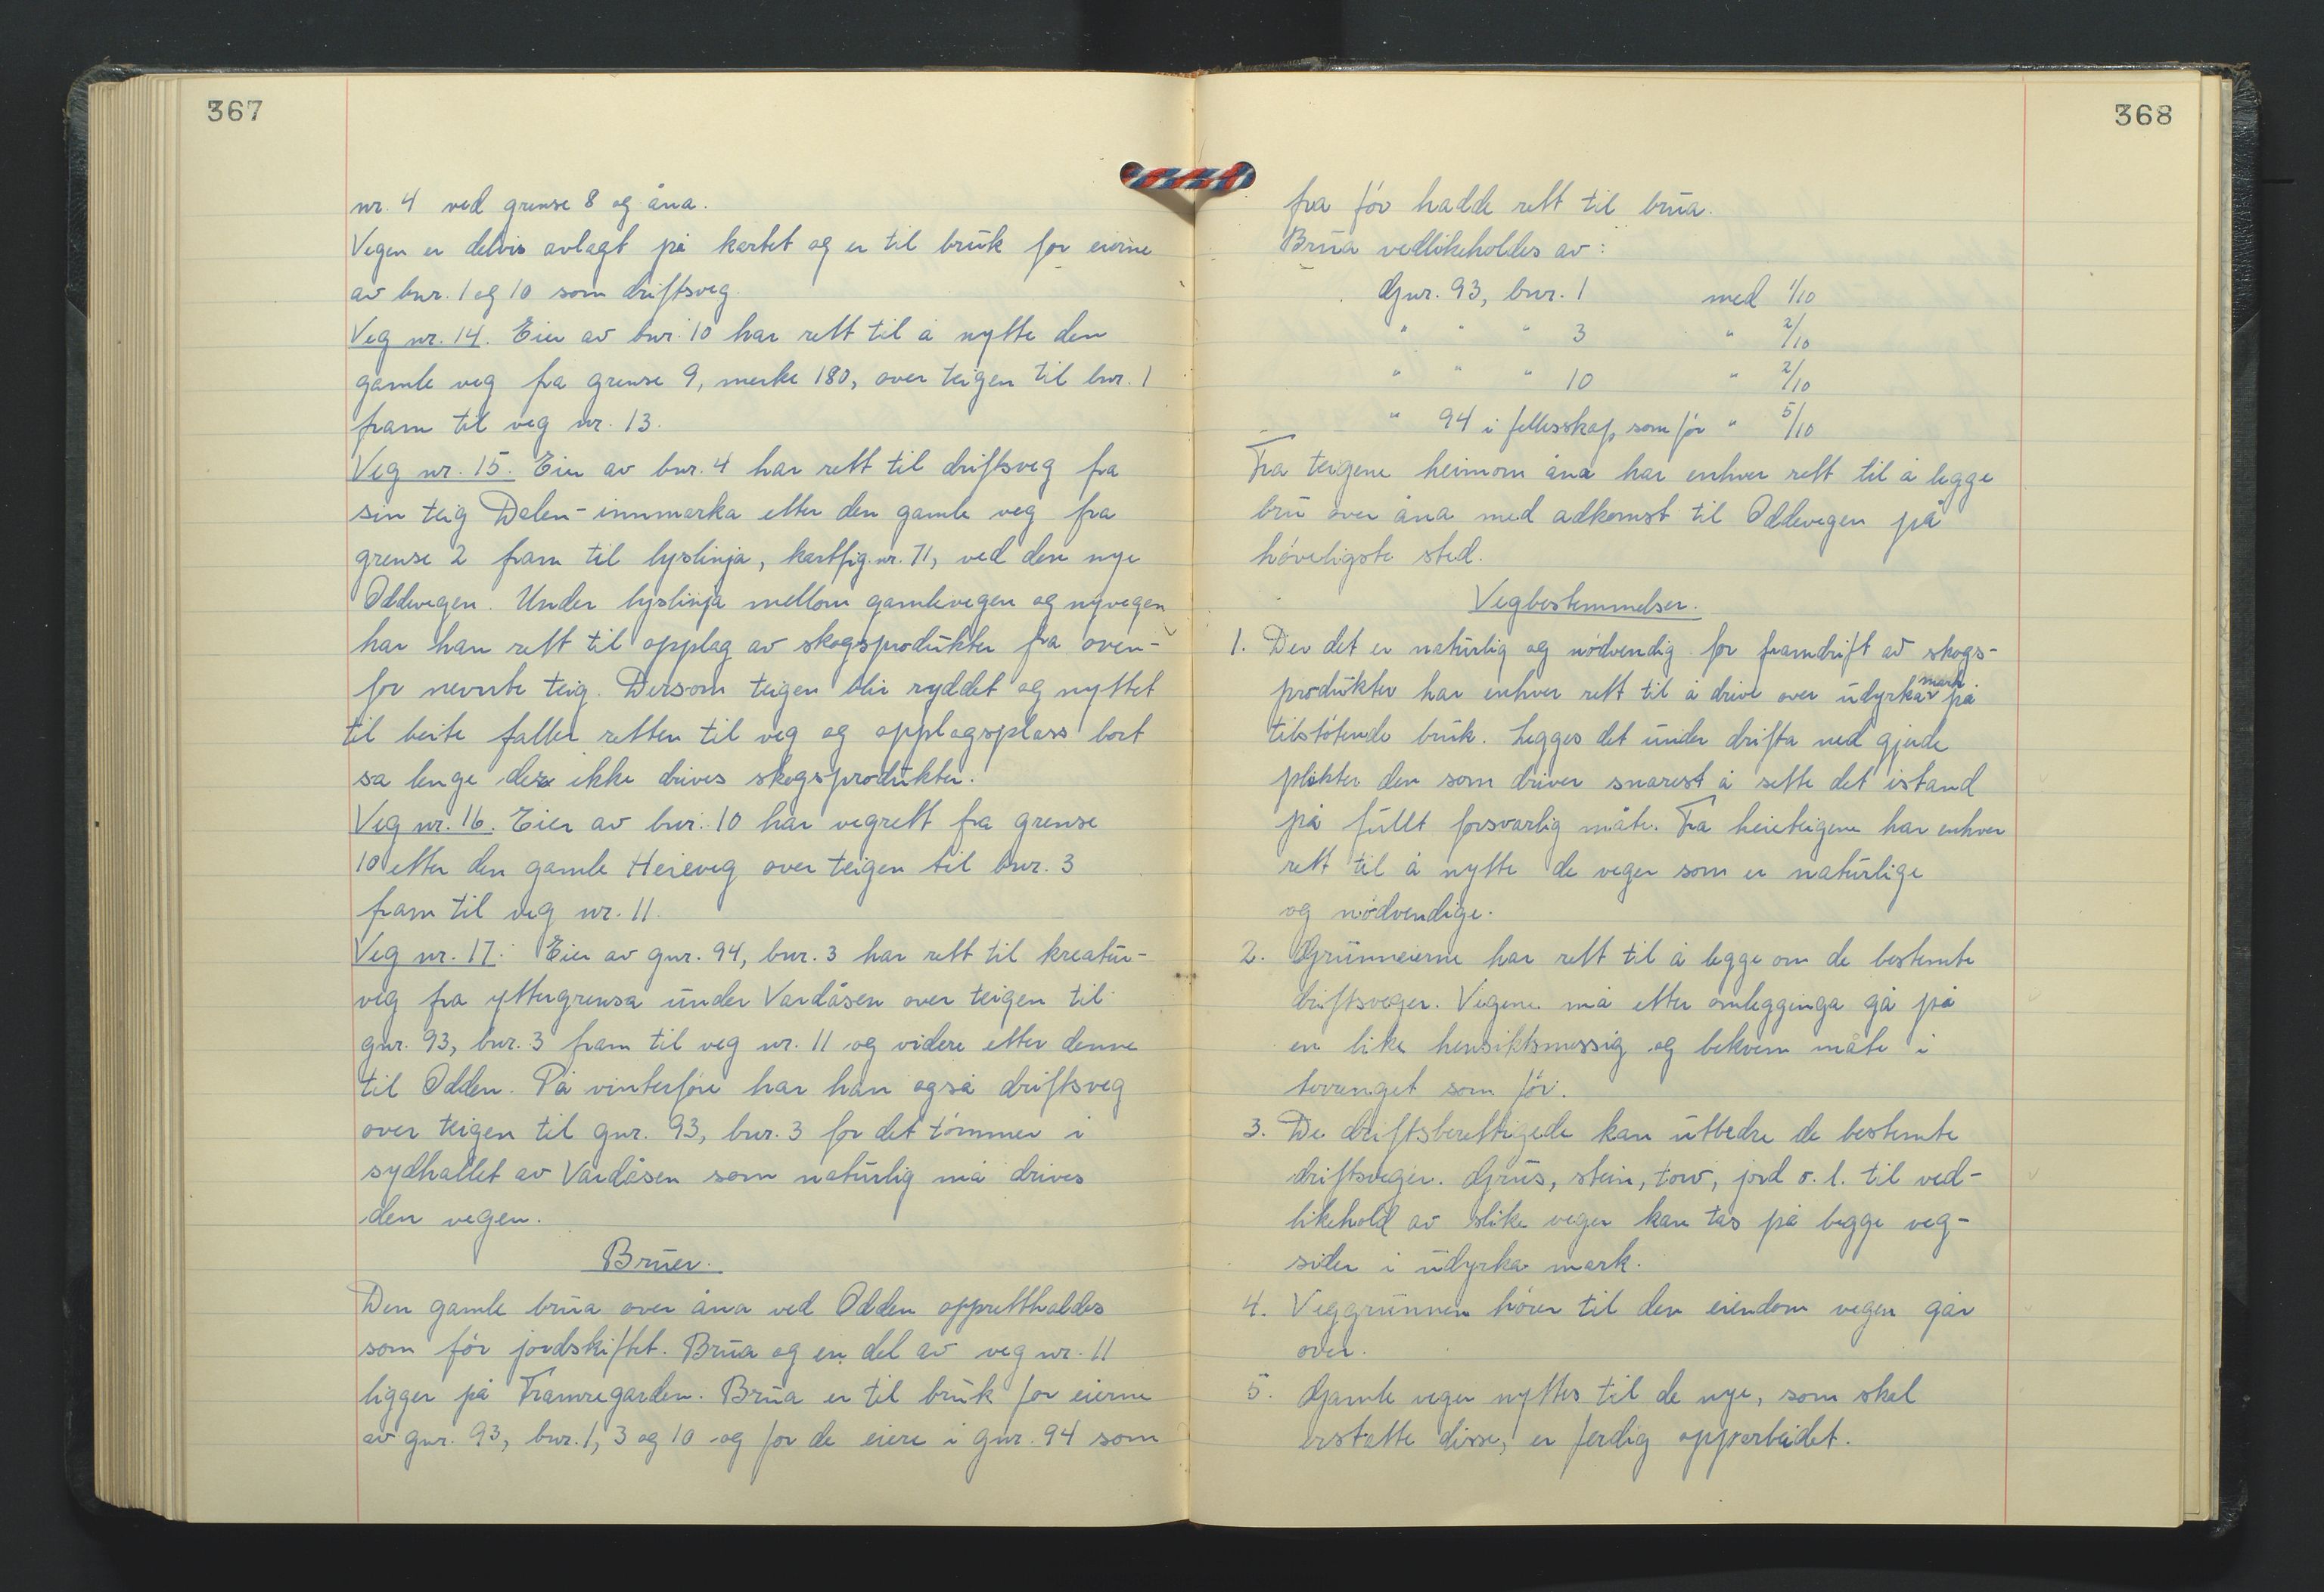 367
nr. 4 ved grense 8 og åna.
Vegen er delvis avlagt på kartet og er til bruk for eierne
av bnr. 1 og 10 som driftsveg.
Veg nr. 14. Eier av bnr. 10 har rett til å nytte den
gamle veg fra grense 9, merke 180, over teigen til bnr. 1
fram til veg nr. 13.
Veg nr. 15. Eier av bnr. 4 har rett til driftsveg fra
sin teig Dalen-innmarka etter den gamle veg fra
grense 2 fram til lyslinja, kartfig. nr. 71, ved den nye
Oddevegen. Under lyslinja mellom gamlevegen og nyvegen
har han rett til opplag av skogsprodukter fra oven-
for nevnte teig. Dersom teigen blir ryddet og nyttet
til beite faller retten til veg og opplagsplass bort
så lenge der ikke drives skogsprodukter.
Veg nr. 16. Eier av bnr. 10 har vegrett fra grense
10 etter den gamle Heieveg over teigen til bnr. 3
fram til veg nr. 11.
Veg nr. 17. Eier av gnr. 94, bnr. 3 har rett til kreatur-
veg fra yttergrensa under Vardåsen over teigen til
gnr. 93, bnr. 3 fram til veg nr. 11 og videre etter denne
til Odden. På vinterføre har han også driftsveg
over teigen til gnr. 93, bnr. 3 for det tømmer i
sydhallet av Vardåsen som naturlig må drives
den vegen.
Bruer.
Den gamle brua over åna ved Odden opprettholdes
som før jordskiftet. Brua og en del av veg nr. 11
ligger på Framregarden. Brua er til bruk for eierne
av gnr. 93, bnr. 1, 3 og 10 og for de eiere i gnr. 94 som
368
fra før hadde rett til brua.
Brua vedlikeholdes av:
Gnr. 93, bnr. 1 med 1/10
" " " 3 " 2/10
" " " 10 " 2/10
" 94 i fellesskap som før " 5/10
Fra teigene heimom åna har enhver rett til å legge
bru over åna med adkomst til Oddevegen på
høveligste sted.
Vegbestemmelser.
1. Der det er naturlig og nødvendig for framdrift av skogs-
produkter har enhver rett til å drive over udyrka mark på
tilstøtende bruk. Legges det under drifta ned gjerde
plikter den som driver snarest å sette det istand
på fullt forsvarlig måte. Fra heieteigene har enhver
rett til å nytte de veger som er naturlige
og nødvendige.
2. Grunneierne har rett til å legge om de bestemte
driftsveger. Vegene må etter omlegginga gå på
en like hensiktsmessig og bekvem måte i
terrenget som før.
3. De driftsberettigede kan utbedre de bestemte
driftsveger. Grus, stein, torv, jord o. l. til ved-
likehold av slike veger kan tas på begge veg-
sider i udyrka mark.
4. Veggrunnen hører til den eiendom vegen går
over.
5. Gamle veger nyttes til de nye, som skal
erstatte disse, er ferdig opparbeidet.